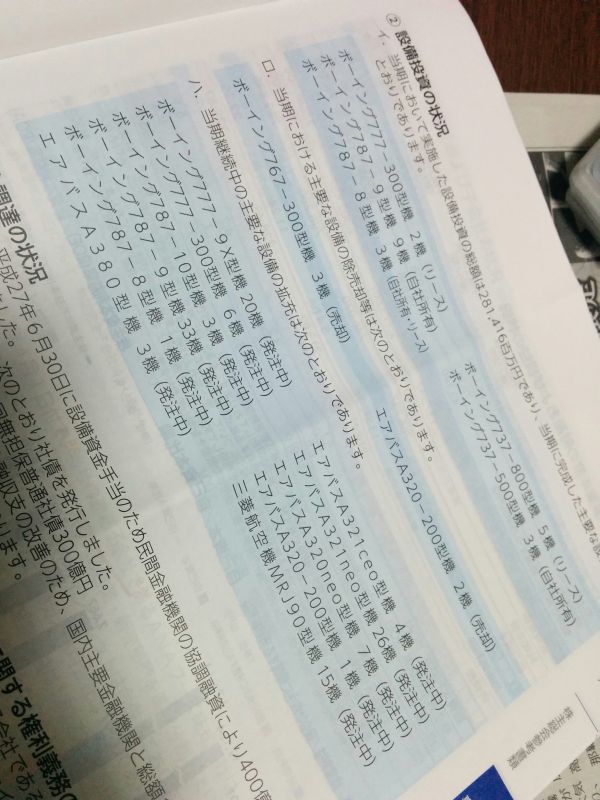 ② 設備投資の状況
イ. 当期において実施した設備投資の総額は281,416百万円であり、当期に完成した主要な設
とおりであります。
ボーイング777－300型機 2機 (リース)
ボーイング787－9型機 9機 (自社所有)
ボーイング787－8型機 3機 (自社所有・リース)
ボーイング737－800型機 5機 (リース)
ボーイング737－500型機 3機 (自社所有)
ロ. 当期における主要な設備の除売却等は次のとおりであります。
ボーイング767－300型機 3機 (売却)
エアバスA320－200型機 2機 (売却)
ハ. 当期継続中の主要な設備の拡充は次のとおりであります。
ボーイング777－9X型機 20機 (発注中)
ボーイング777－300型機 6機 (発注中)
ボーイング787－10型機 3機 (発注中)
ボーイング787－9型機 33機 (発注中)
ボーイング787－8型機 1機 (発注中)
エアバスA380型機 3機 (発注中)
エアバスA321ceo型機 4機 (発注中)
エアバスA321neo型機 26機 (発注中)
エアバスA320neo型機 7機 (発注中)
エアバスA320－200型機 1機 (発注中)
三菱航空機MRJ90型機 15機 (発注中)
調達の状況
平成27年6月30日に設備資金手当のため民間金融機関の協調融資により400億
しました。次のとおり社債を発行しました。
無担保普通社債300億円
融収支の改善のため、国内主要金融機関と総額
ります。
関する権利義務の
会社である
株主総会参考書類